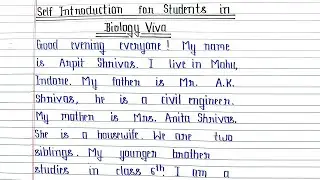 Self Introduction for Students in
Biology Viva
Good evening everyone! My name
is Arpit Shrivas. I live in Mahu,
Indore. My father is Mr. A.K.
Shrivas, he is a civil engineer.
My mother is Mrs. Anita Shrivas.
She is a housewife. We are two
siblings. My younger brother
studies in class 6th. I am a